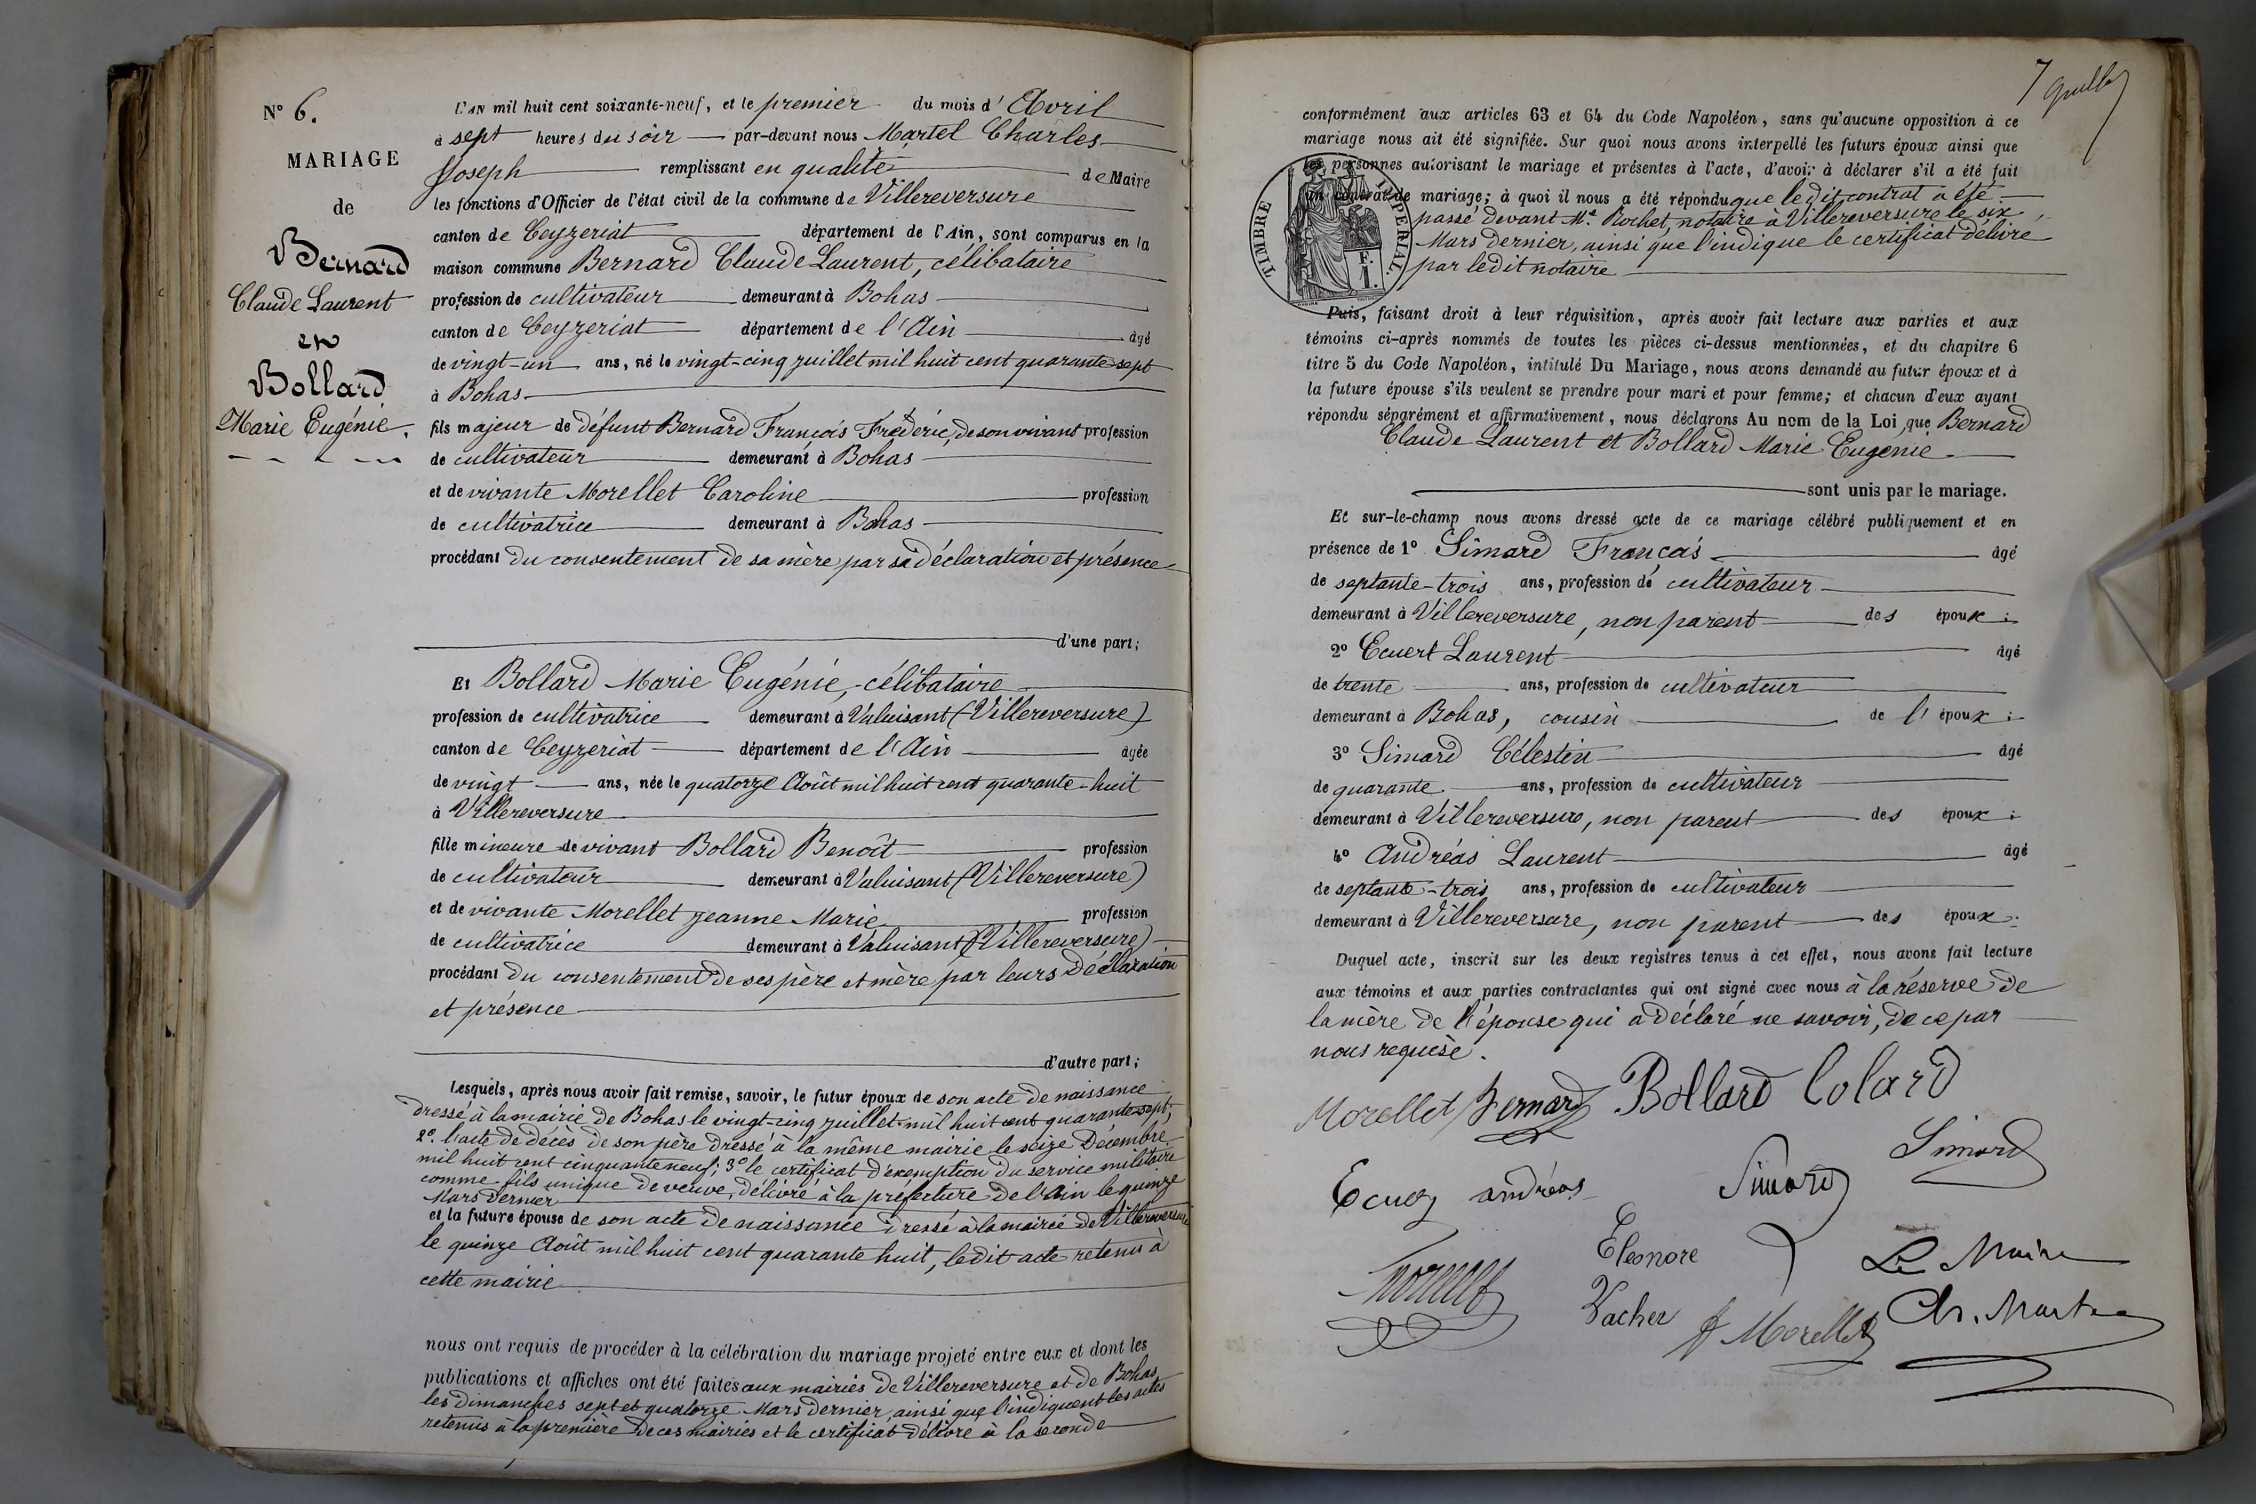 N° 6.
MARIAGE
de
Bernard
Claude Laurent
et
Bollard
Marie Eugénie.
L'AN mil huit cent soixante-neuf, et le premier du mois d' Avril
à sept heures du soir par-devant nous Martel Charles
Joseph remplissant en qualité de Maire
les fonctions d'Officier de l'état civil de la commune de Villereversure
canton de Ceyzeriat département de l'Ain, sont comparus en la
maison commune Bernard Claude Laurent, célibataire
profession de cultivateur demeurant à Bohas
canton de Ceyzeriat département de l'Ain âgé
de vingt-un ans, né le vingt-cinq juillet mil huit cent quarante-sept
à Bohas
fils majeur de défunt Bernard François Fréderic, de son vivant profession
de cultivateur demeurant à Bohas
et de vivante Morellet Caroline profession
de cultivatrice demeurant à Bohas
procédant du consentement de sa mère par sa déclaration et présence
d'une part;
Et Bollard Marie Eugénie, célibataire
profession de cultivatrice demeurant à Valuisant (Villereversure)
canton de Ceyzeriat département de l'Ain âgée
de vingt ans, née le quatorze Août mil huit cent quarante-huit
à Villereversure
fille mineure de vivant Bollard Benoît profession
de cultivateur demeurant à Valuisant (Villereversure)
et de vivante Morellet Jeanne Marie profession
de cultivatrice demeurant à Valuisant (Villereversure)
procédant du consentement de ses père et mère par leurs déclaration
et présence
d'autre part;
Lesquels, après nous avoir fait remise, savoir, le futur époux de son acte de naissance
dressé à la mairie de Bohas le vingt-cinq juillet mil huit cent quarante-sept;
2° l'acte de décès de son père dressé à la même mairie le seize Décembre
mil huit cent cinquante neuf; 3° le certificat d'exemption du service militaire
comme fils unique de veuve, délivré à la préfecture de l'Ain le quinze
Mars dernier
et la future épouse de son acte de naissance dressé à la mairie de Villereversure
le quinze Août mil huit cent quarante huit, ledit acte retenu à
cette mairie
nous ont requis de procéder à la célébration du mariage projeté entre eux et dont les
publications et affiches ont été faites aux mairies de Villereversure et de Bohas
les dimanches sept et quatorze Mars dernier, ainsi que l'indiquent les actes
retenus à la première de ces mairies et le certificat délivré à la seconde
7
conformément aux articles 63 et 64 du Code Napoléon, sans qu'aucune opposition à ce
mariage nous ait été signifiée. Sur quoi nous avons interpellé les futurs époux ainsi que
les personnes autorisant le mariage et présentes à l'acte, d'avoir à déclarer s'il a été fait
un contrat de mariage; à quoi il nous a été répondu que ledit contrat a été
passé devant Me. Rochet, notaire à Villereversure le six
Mars dernier, ainsi que l'indique le certificat délivré
par ledit notaire
TIMBRE IMPERIAL.
F.
1.
Puis, faisant droit à leur réquisition, après avoir fait lecture aux parties et aux
témoins ci-après nommés de toutes les pièces ci-dessus mentionnées, et du chapitre 6
titre 5 du Code Napoléon, intitulé Du Mariage, nous avons demandé au futur époux et à
la future épouse s'ils veulent se prendre pour mari et pour femme; et chacun d'eux ayant
répondu séparément et affirmativement, nous déclarons Au nom de la Loi, que Bernard
Claude Laurent et Bollard Marie Eugénie
sont unis par le mariage.
Et sur-le-champ nous avons dressé acte de ce mariage célébré publiquement et en
présence de 1° Simard François âgé
de septante-trois ans, profession de cultivateur
demeurant à Villereversure, non parent des époux;
2° Ecuert Laurent âgé
de trente ans, profession de cultivateur
demeurant à Bohas, cousin de l' époux;
3° Simard Célestin âgé
de quarante ans, profession de cultivateur
demeurant à Villereversure, non parent des époux;
4° Andréas Laurent âgé
de septante-trois ans, profession de cultivateur
demeurant à Villereversure, non parent des époux.
Duquel acte, inscrit sur les deux registres tenus à cet effet, nous avons fait lecture
aux témoins et aux parties contractantes qui ont signé avec nous à la réserve de
la mère de l'épouse qui a déclaré ne savoir, de ce par
nous requise.
Morellet Bernard Bollard Colard
Simard
andréas Simard
Eleonore Le Maire
Vacher Morellet Ch. Martel